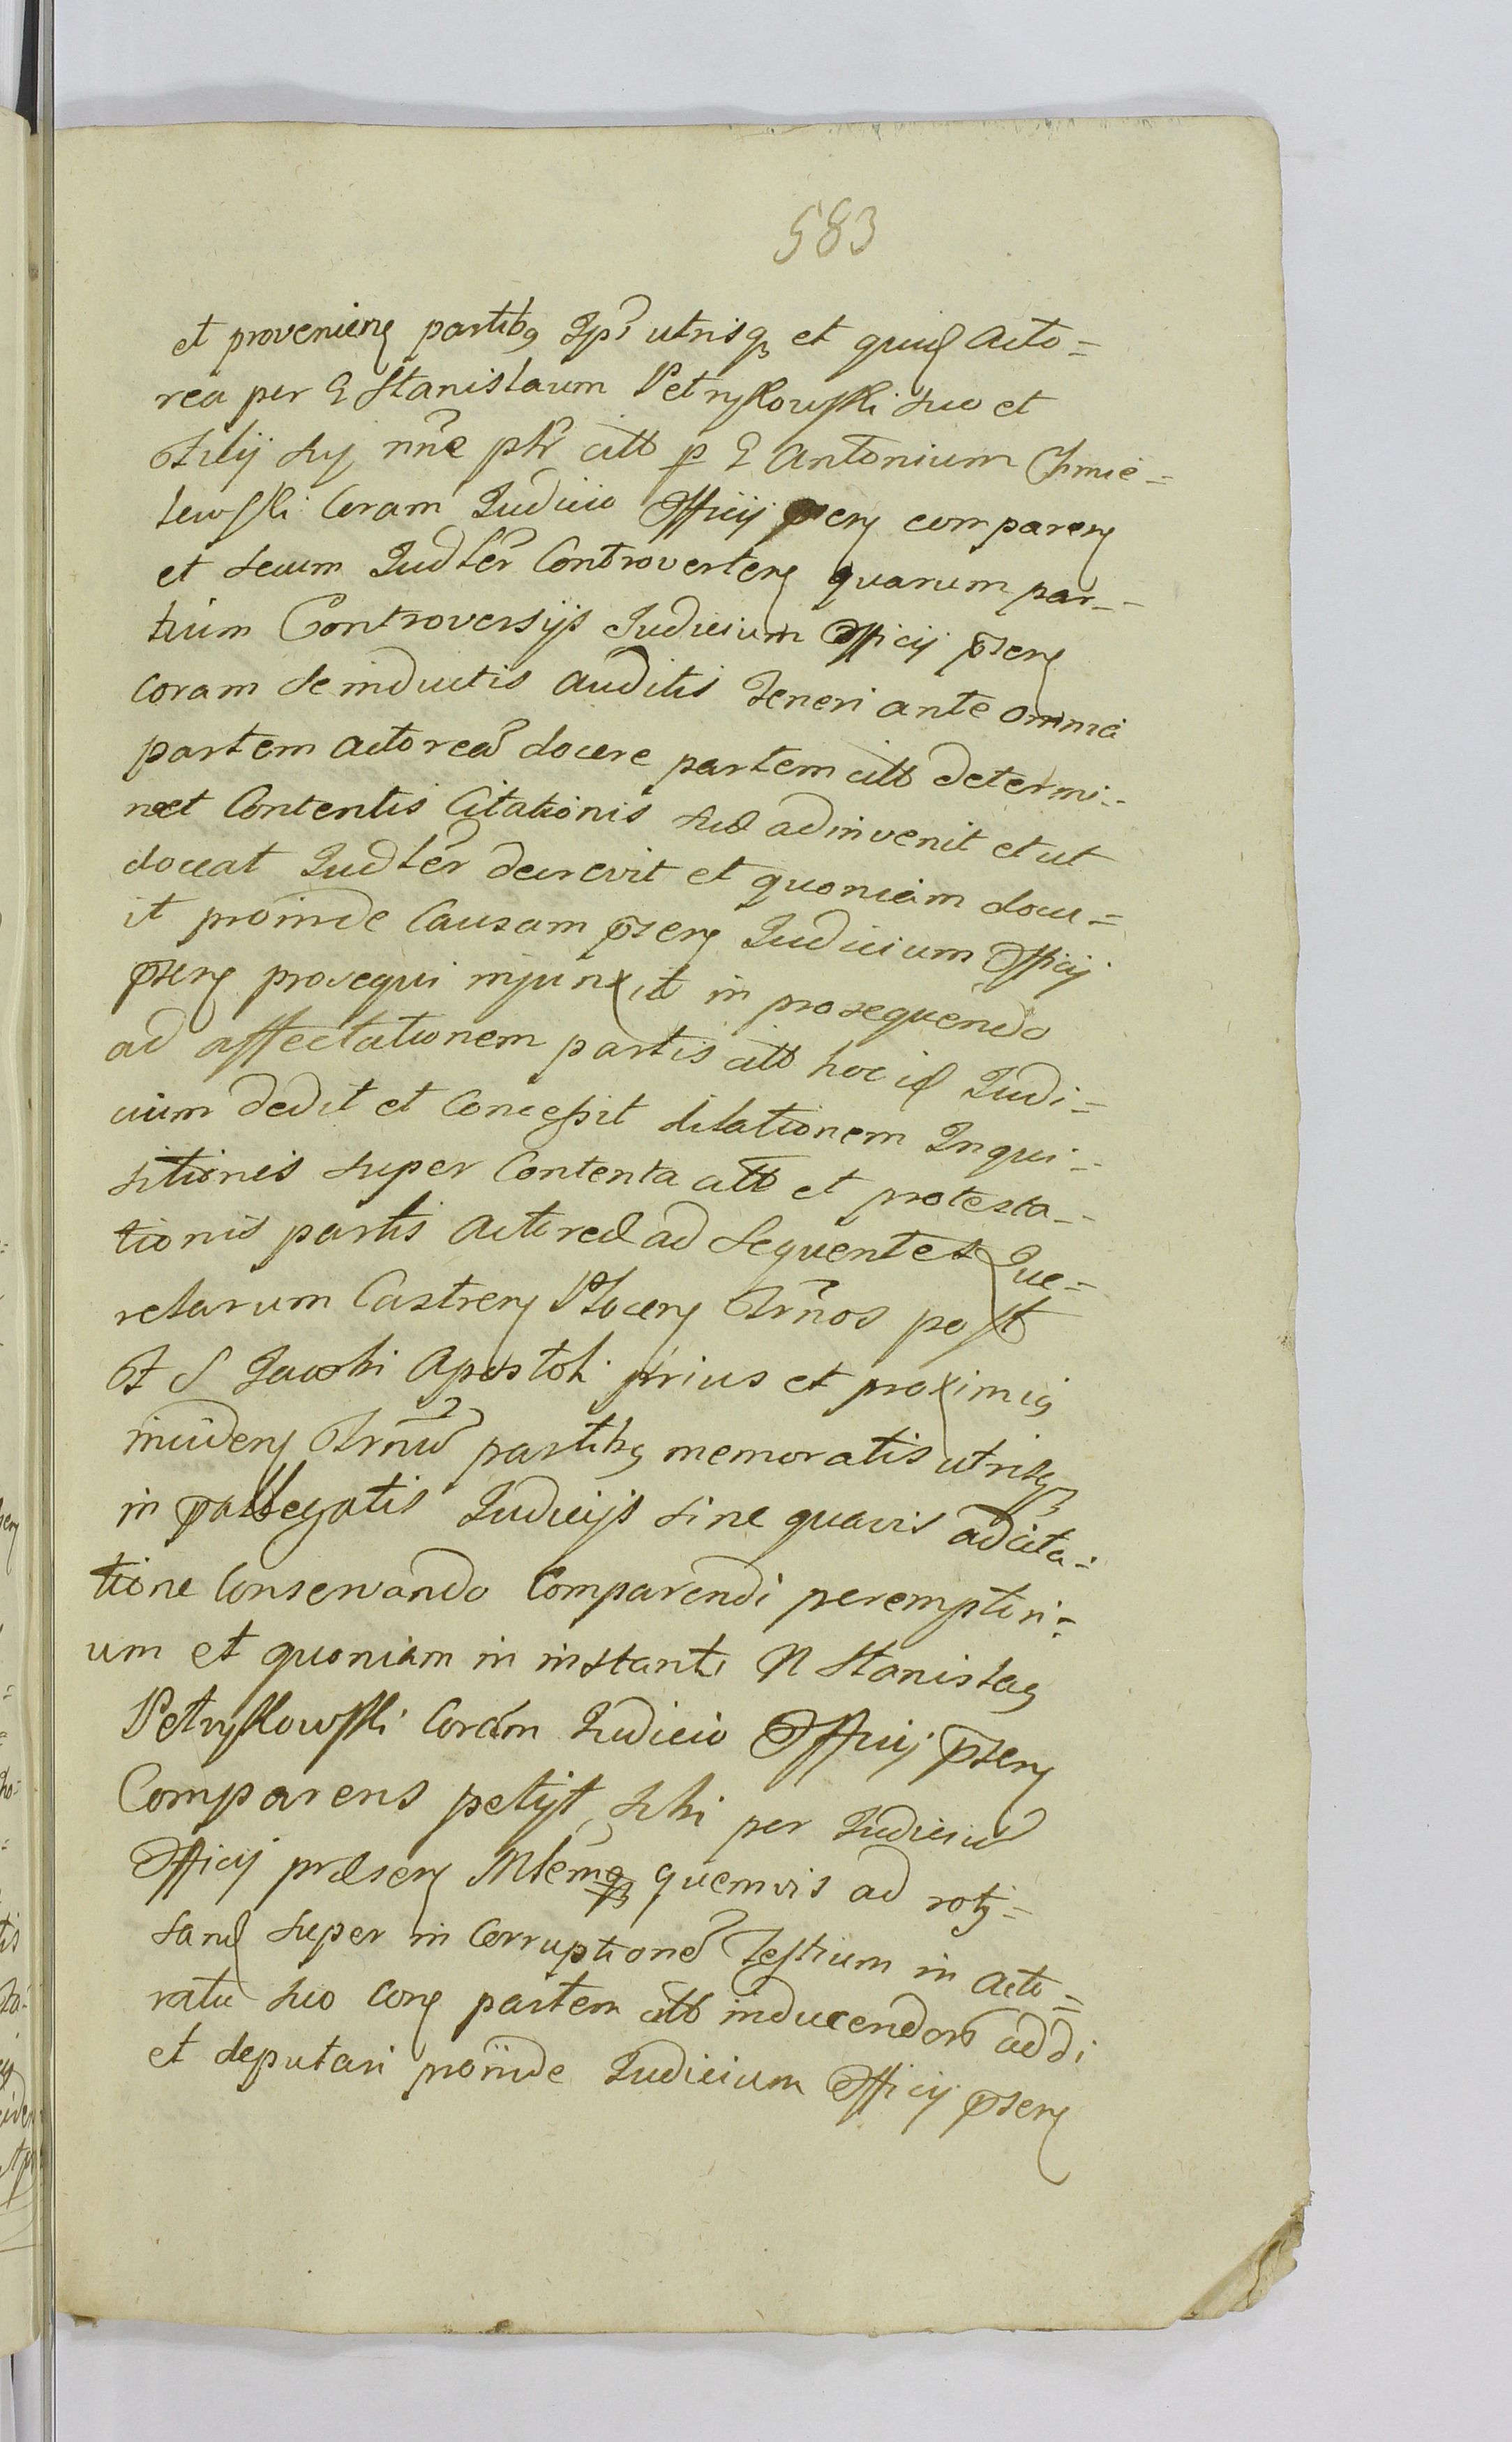 583
et provenien partibq Ips utrisq et quid Acto=
rea per G Stanislaum Petrykowski suo et
Filij sij nne ptr citt p G Antonium Chmie=
lewski Coram Judicio Officij psen comparen
et secum Judler Controverten quarum par=
tium Controversijs Judicium Officij psen
Coram se inductis auditis teneri ante omnia
partem actorea docere partem citt determi=
net Contentis Citationis suæ adinvenit et ut
doceat Judler decrevit et quoniam docu=
it proinde Causam psen Judicium Officij
psen prosequi injunxit in prosequendo
ad affectationem partis citt hoc id Judi=
cium dedit et Concessit dilationem Inqui=
sitionis super Contenta citt et protesta=
tionis partis actoreæ ad sequentes Que=
relarum Castren Plocen Trnos post
F S Jacobi Apostoli prius et proximiq
inciden Trnu partibq memoratis utrisq
in pallegatis Judicijs sine quavis adcita=
tione Conservando Comparendi peremptori=
um et quoniam in instanti N Stanislaq
Petrykowski Coram Judicio Officij psen
Comparens petijt sibi per Judiciu
Officij præsen Mlem quemvis ad rotj=
sand super in Corruptione Testium in acto=
ratu suo Con partem citt inducendor addi
et deputari proinde Judicium Officij psen